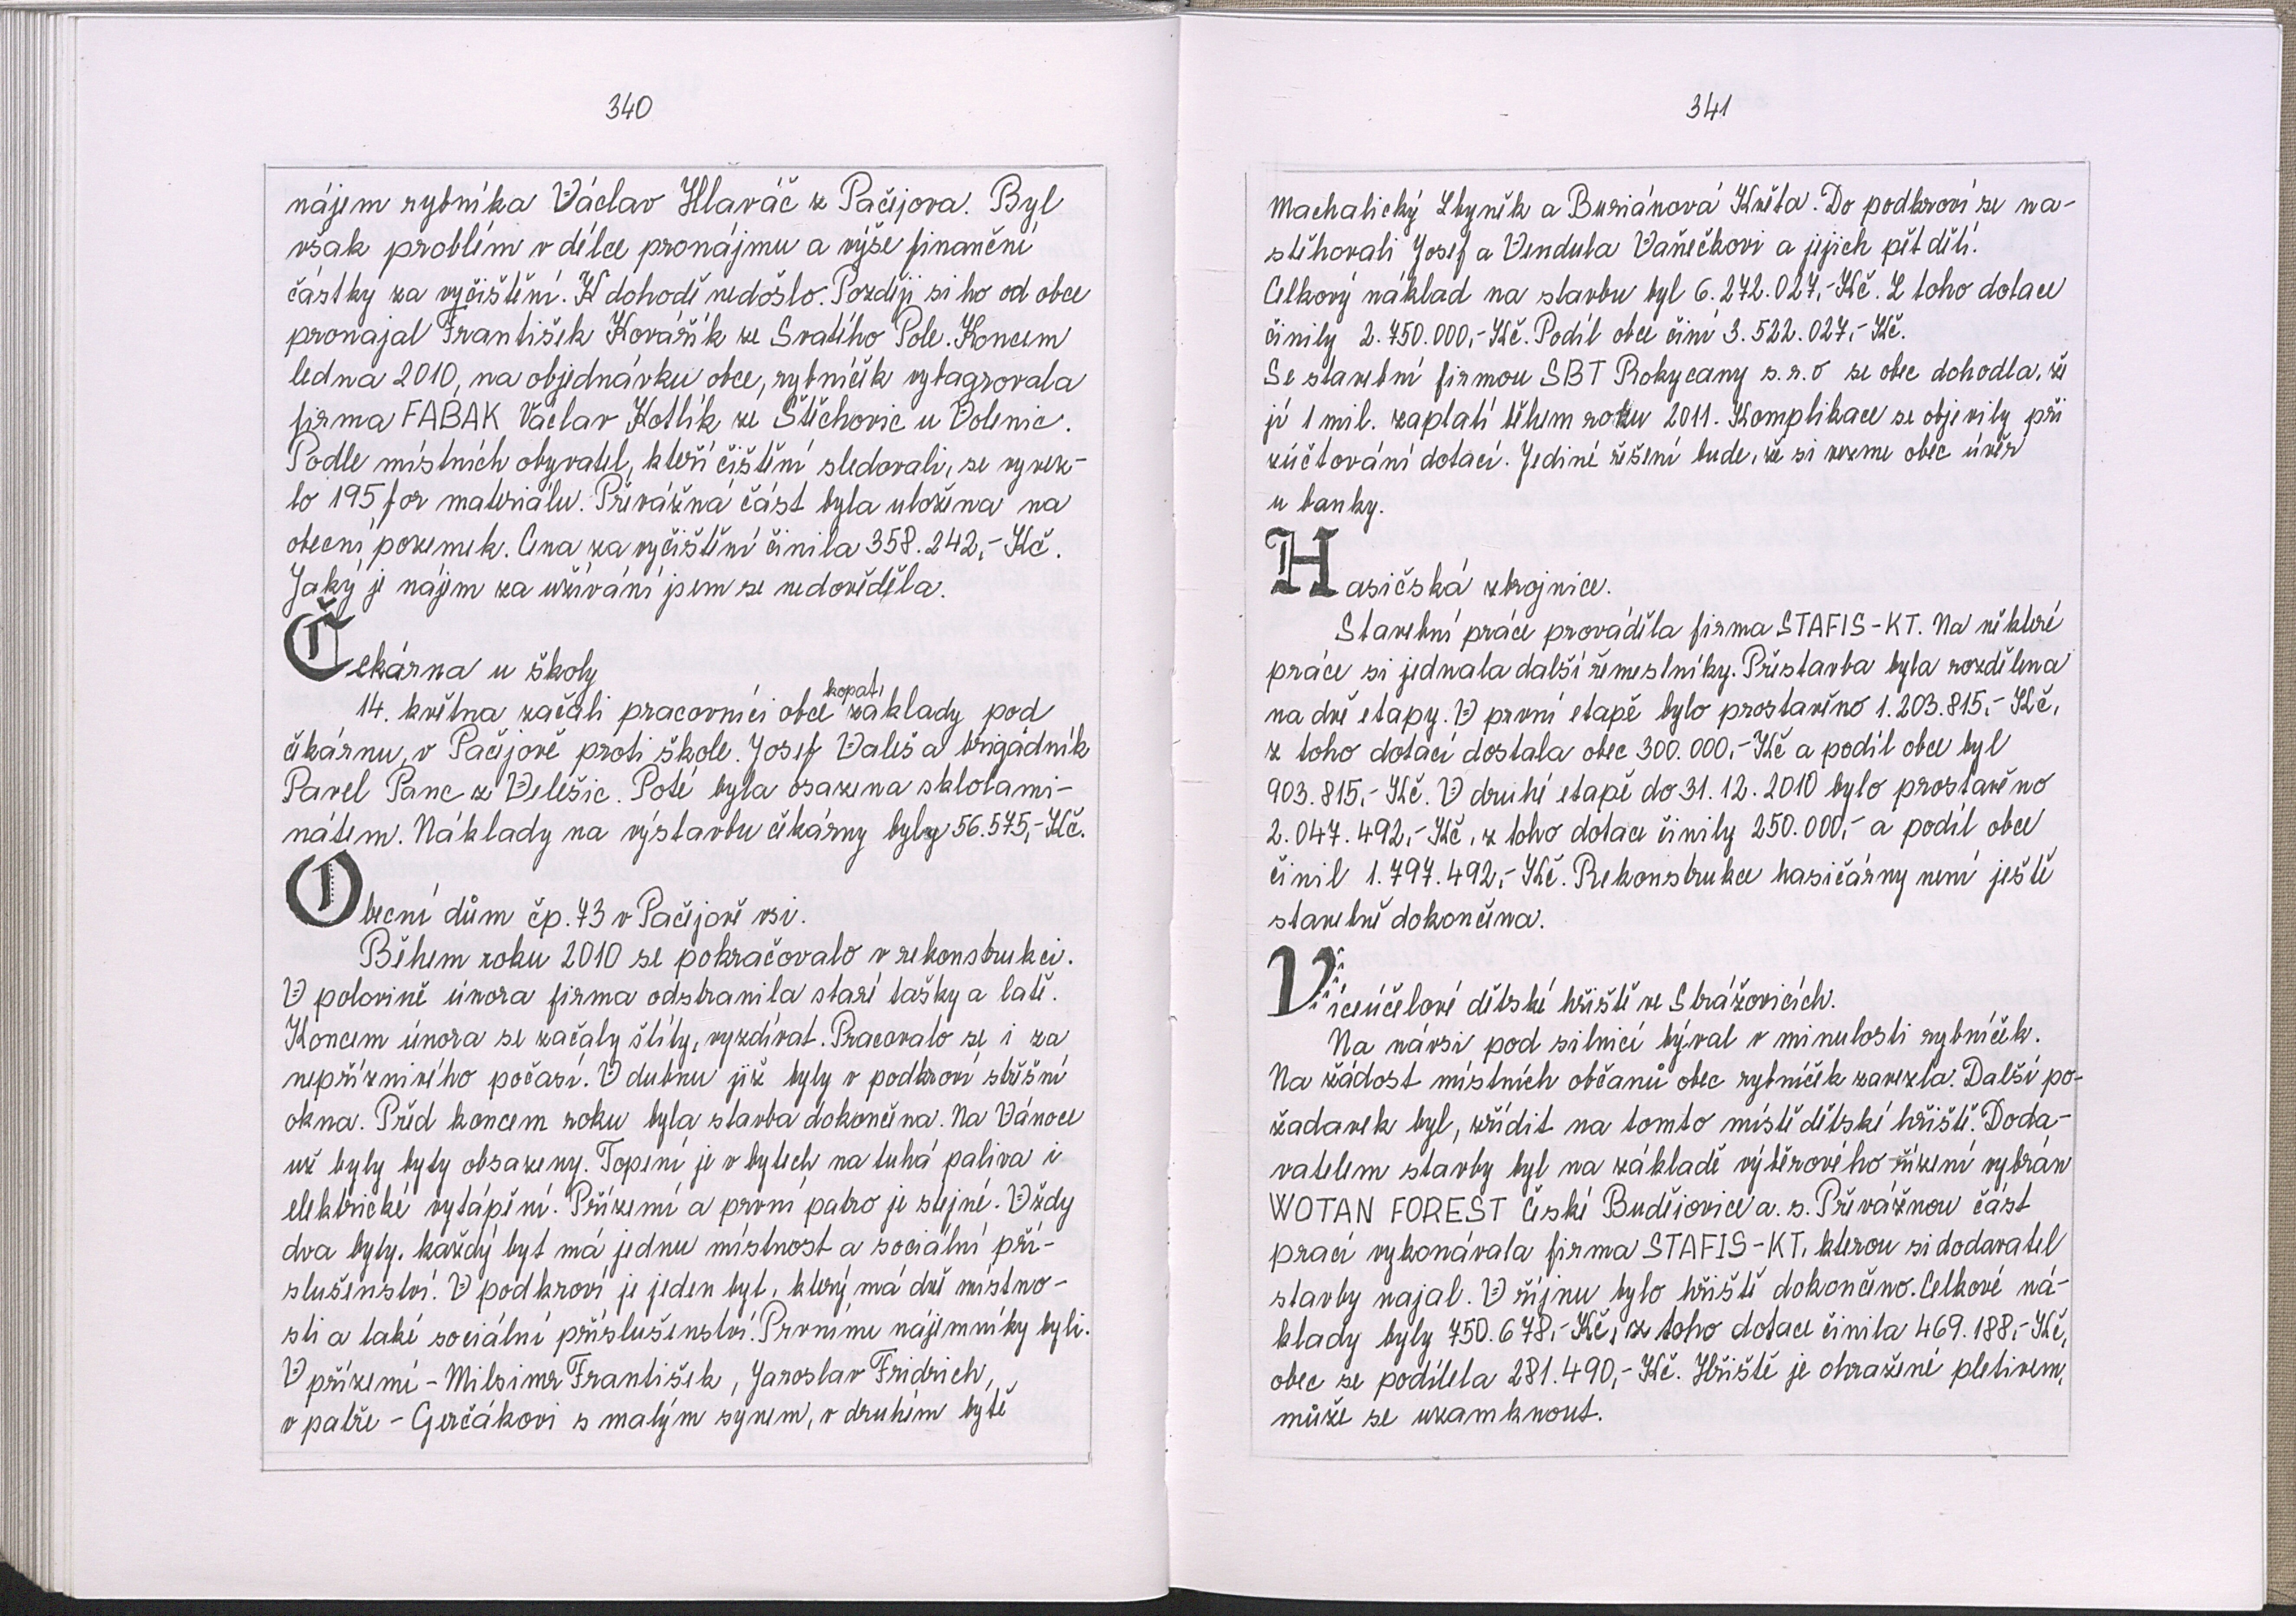 340
nájem rybníka Václav Hlaváč z Pačejova. Byl
však problém v délce pronájmu a výše finanční
částky za vyčištění. K dohodě nedošlo. Později si ho od obce
pronajal František Kovářík ze Svatého Pole. Koncem
ledna 2010, na objednávku obce, rybníček vybagrovala
firma FABAK Václav Kotlík ze Štěchovic u Volenic.
Podle místních obyvatel, kteří čištění sledovali, se vyvez-
lo 195 for materiálu. Převážná část byla uložena na
obecní pozemek. Cena za vyčištění činila 358.242,- Kč.
Jaký je nájem za užívání jsem se nedověděla.
Čekárna u školy
14. května začali pracovníci obce kopati základy pod
čekárnu, v Pačejově proti škole. Josef Valeš a brigádník
Pavel Panc z Velešic. Poté byla osazena sklolami-
nátem. Náklady na výstavbu čekárny byly 56.575,- Kč.
Obecní dům čp. 73 v Pačejově vsi.
Během roku 2010 se pokračovalo v rekonstrukci.
V polovině února firma odstranila staré tašky a latě.
Koncem února se začaly štíty, vyzdívat. Pracovalo se i za
nepříznivého počasí. V dubnu již byly v podkroví střešní
okna. Před koncem roku byla stavba dokončena. Na Vánoce
už byly byty obsazeny. Topení je v bytech na tuhá paliva i
elektrické vytápění. Přízemí a první patro je stejné. Vždy
dva byty. každý byt má jednu místnost a sociální pří-
slušenství. V podkroví je jeden byt, který má dvě místno-
sti a také sociální příslušenství. Prvními nájemníky byli.
V přízemí - Milsimr František, Jaroslav Fridrich,
v patře - Gerčákovi s malým synem, v druhém bytě
341
Machalický Zbyněk a Buriánová Květa. Do podkroví se na-
stěhovali Josef a Vendula Vaňečkovi a jejich pět dětí.
Celkový náklad na stavbu byl 6.272.027,- Kč. Z toho dotace
činily 2.750.000,- Kč. Podíl obce činí 3.522.027,- Kč.
Se stavební firmou SBT Rokycany s.r.o se obec dohodla, že
jí 1 mil. zaplatí během roku 2011. Komplikace se objevily při
zúčtování dotací. Jediné řešení bude, že si vezme obec úvěr
u banky.
Hasičská zbrojnice.
Stavební práce prováděla firma STAFIS-KT. Na některé
práce si jednala další řemeslníky. Přestavba byla rozdělena
na dvě etapy. V první etapě bylo prostavěno 1.203.815,- Kč,
z toho dotací dostala obec 300.000,- Kč a podíl obce byl
903.815,- Kč. V druhé etapě do 31.12.2010 bylo prostavěno
2.047.492,- Kč, z toho dotace činily 250.000,- a podíl obce
činil 1.797.492,- Kč. Rekonstrukce hasičárny není ještě
stavebně dokončena.
Víceúčelové dětské hřiště ve Strážovicích.
Na návsi pod silnicí býval v minulosti rybníček.
Na žádost místních občanů obec rybníček zavezla. Další po-
žadavek byl, zřídit na tomto místě dětské hřiště. Doda-
vatelem stavby byl na základě výběrového řízení vybrán
WOTAN FOREST České Budějovice a. s. Převážnou část
prací vykonávala firma STAFIS-KT, kterou si dodavatel
stavby najal. V říjnu bylo hřiště dokončeno. Celkové ná-
klady byly 750.678,- Kč, z toho dotace činila 469.188,- Kč,
obec se podílela 281.490,- Kč. Hřiště je ohražené pletivem,
může se uzamknout.